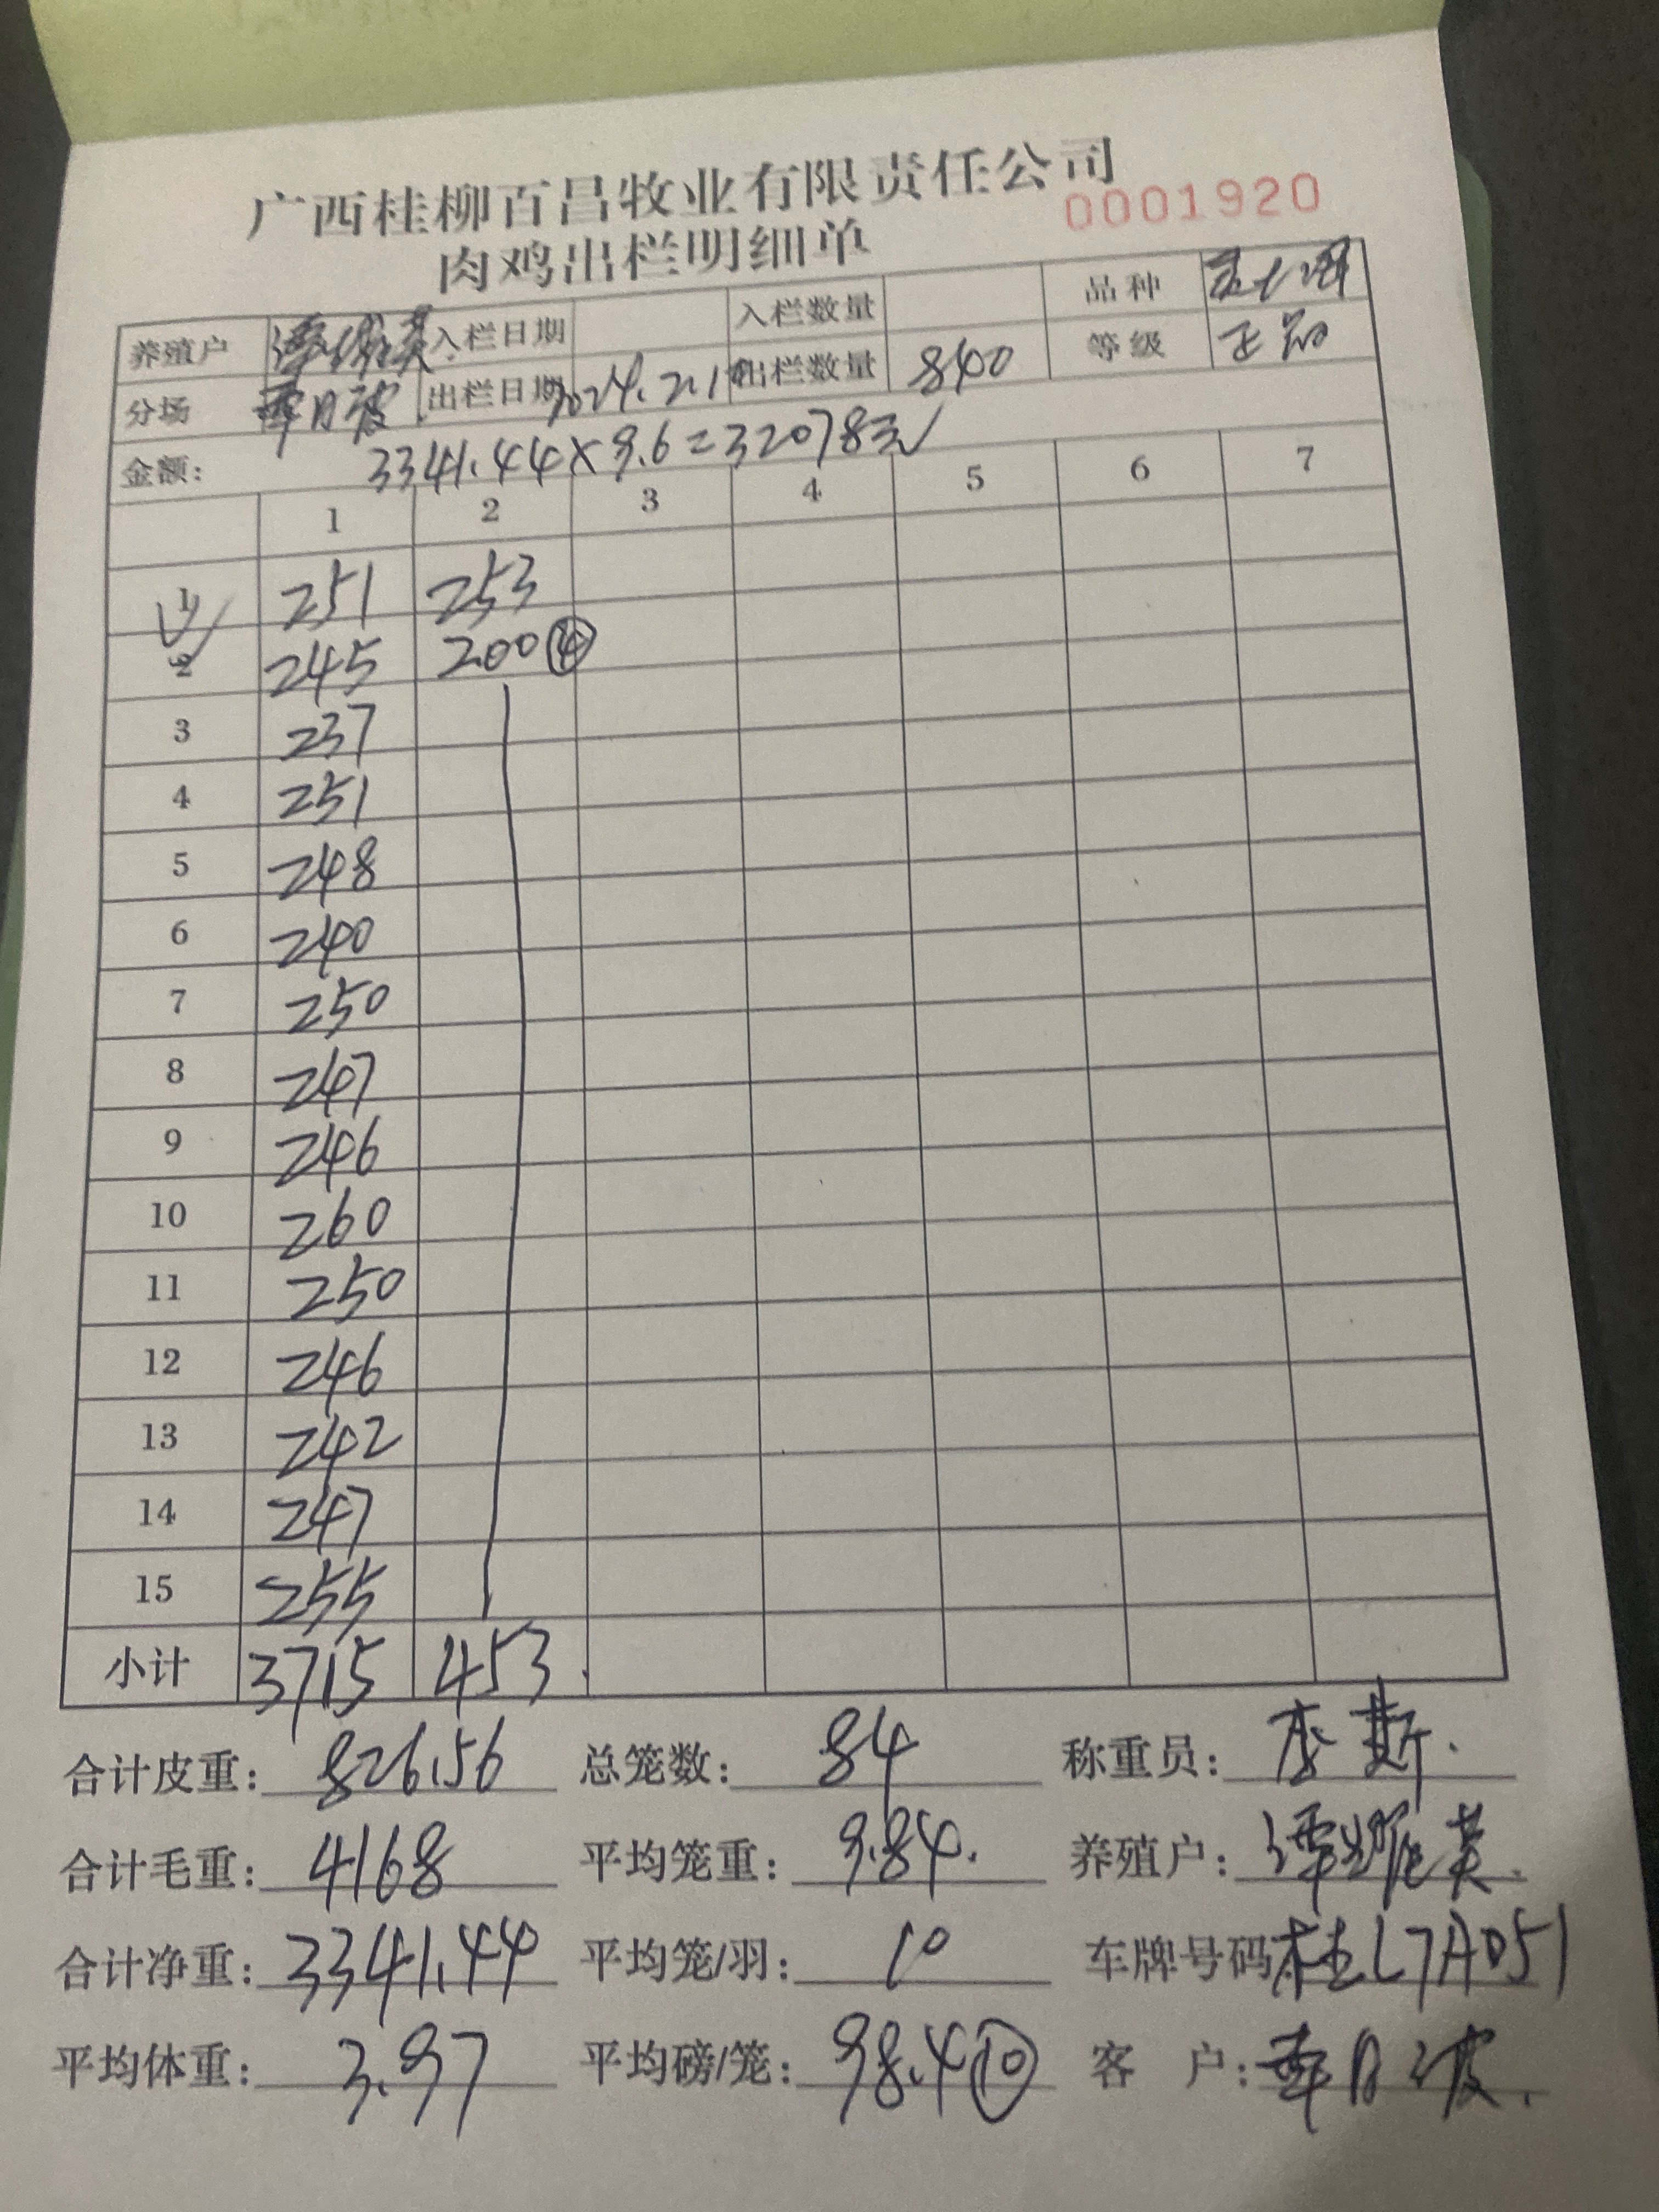 广西桂柳百昌牧业有限责任公司
0001920
肉鸡出栏明细单
养殖户 入栏日期 入栏数量 品种
分场 覃月波 出栏日期 2024.2.1 出栏数量 840 等级 正品
金额: 3341.44×9.6=32078元
1 2 3 4 5 6 7
1 251 253
2 245 200 ④
3 237
4 251
5 248
6 240
7 250
8 247
9 246
10 260
11 250
12 246
13 242
14 247
15 255
小计 3715 453
合计皮重: 826.56 总笼数: 84 称重员:
合计毛重: 4168 平均笼重: 9.84. 养殖户:
合计净重: 3341.44 平均笼/羽: 10 车牌号码 桂L7A051
平均体重: 3.97 平均磅/笼: 98.4 ⑩ 客 户: 覃月波.